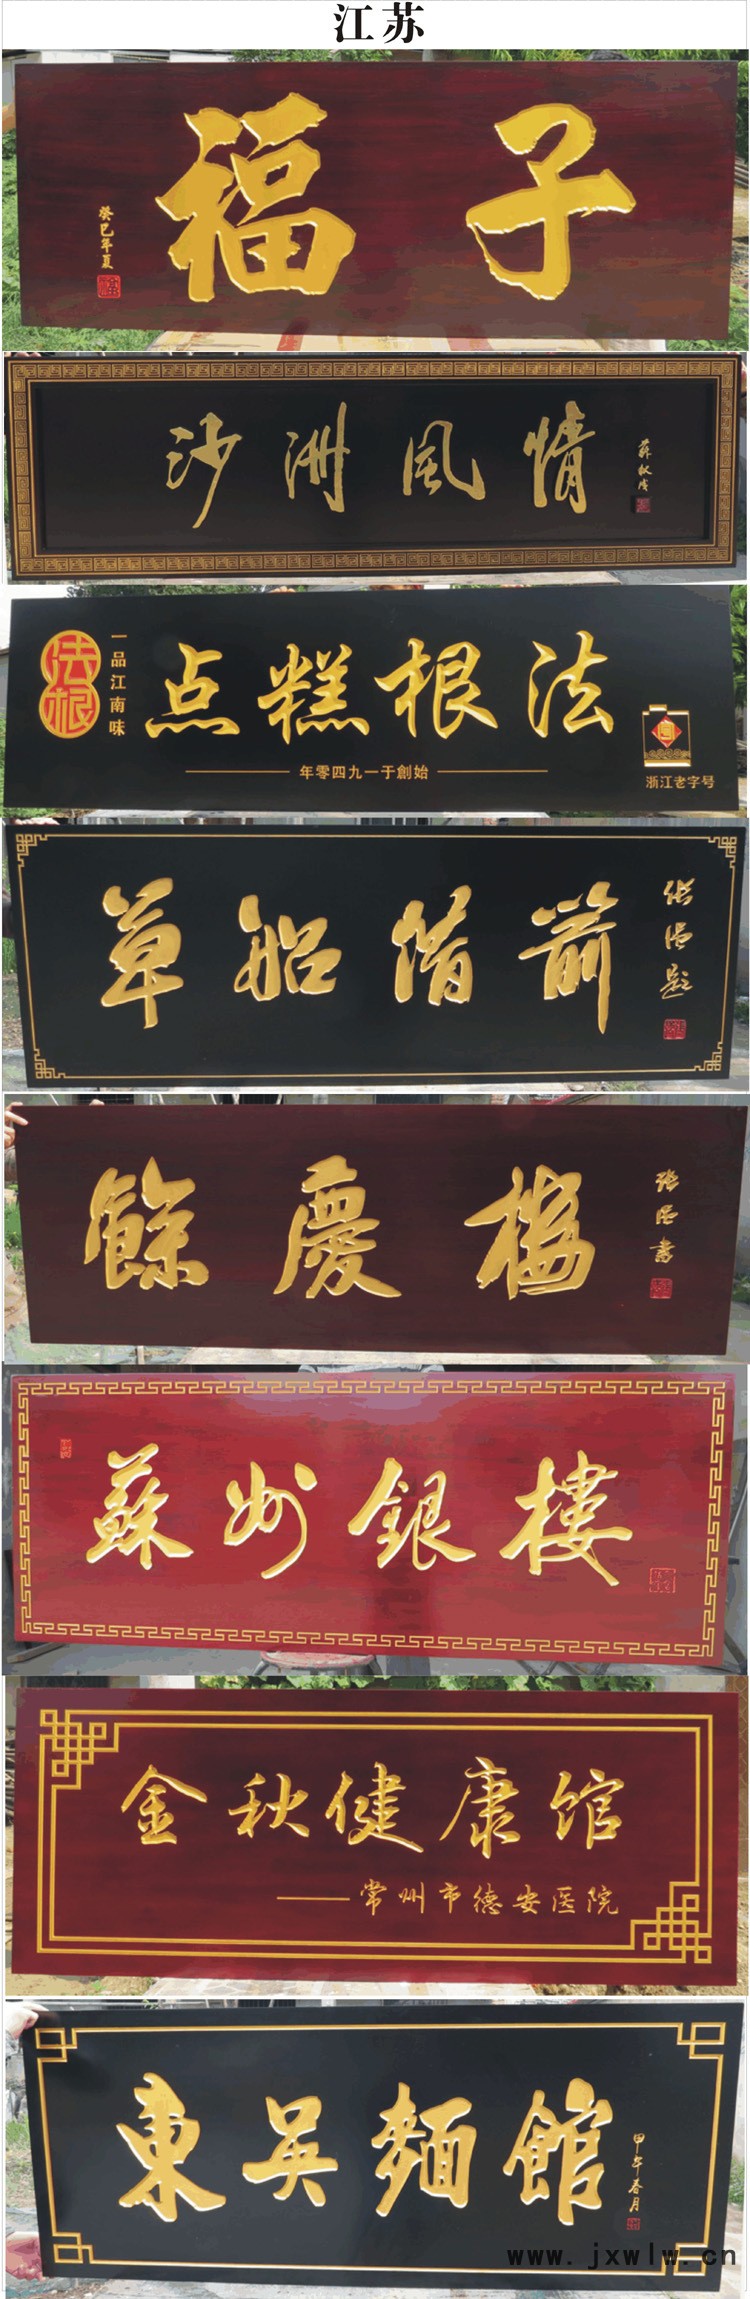 江苏
福子
癸巳年夏
沙洲風情
法根
一品江南味
点糕根法
年零四九一于創始
浙江老字号
草船借箭
餘慶樓
蘇州銀樓
金秋健康馆
——常州市德安医院
東吴麵館
甲午春月
www.jxwlw.cn